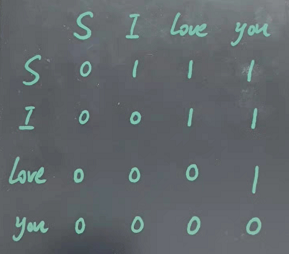 S I Love you
S 0 1 1 1
I 0 0 1 1
Love 0 0 0 1
you 0 0 0 0